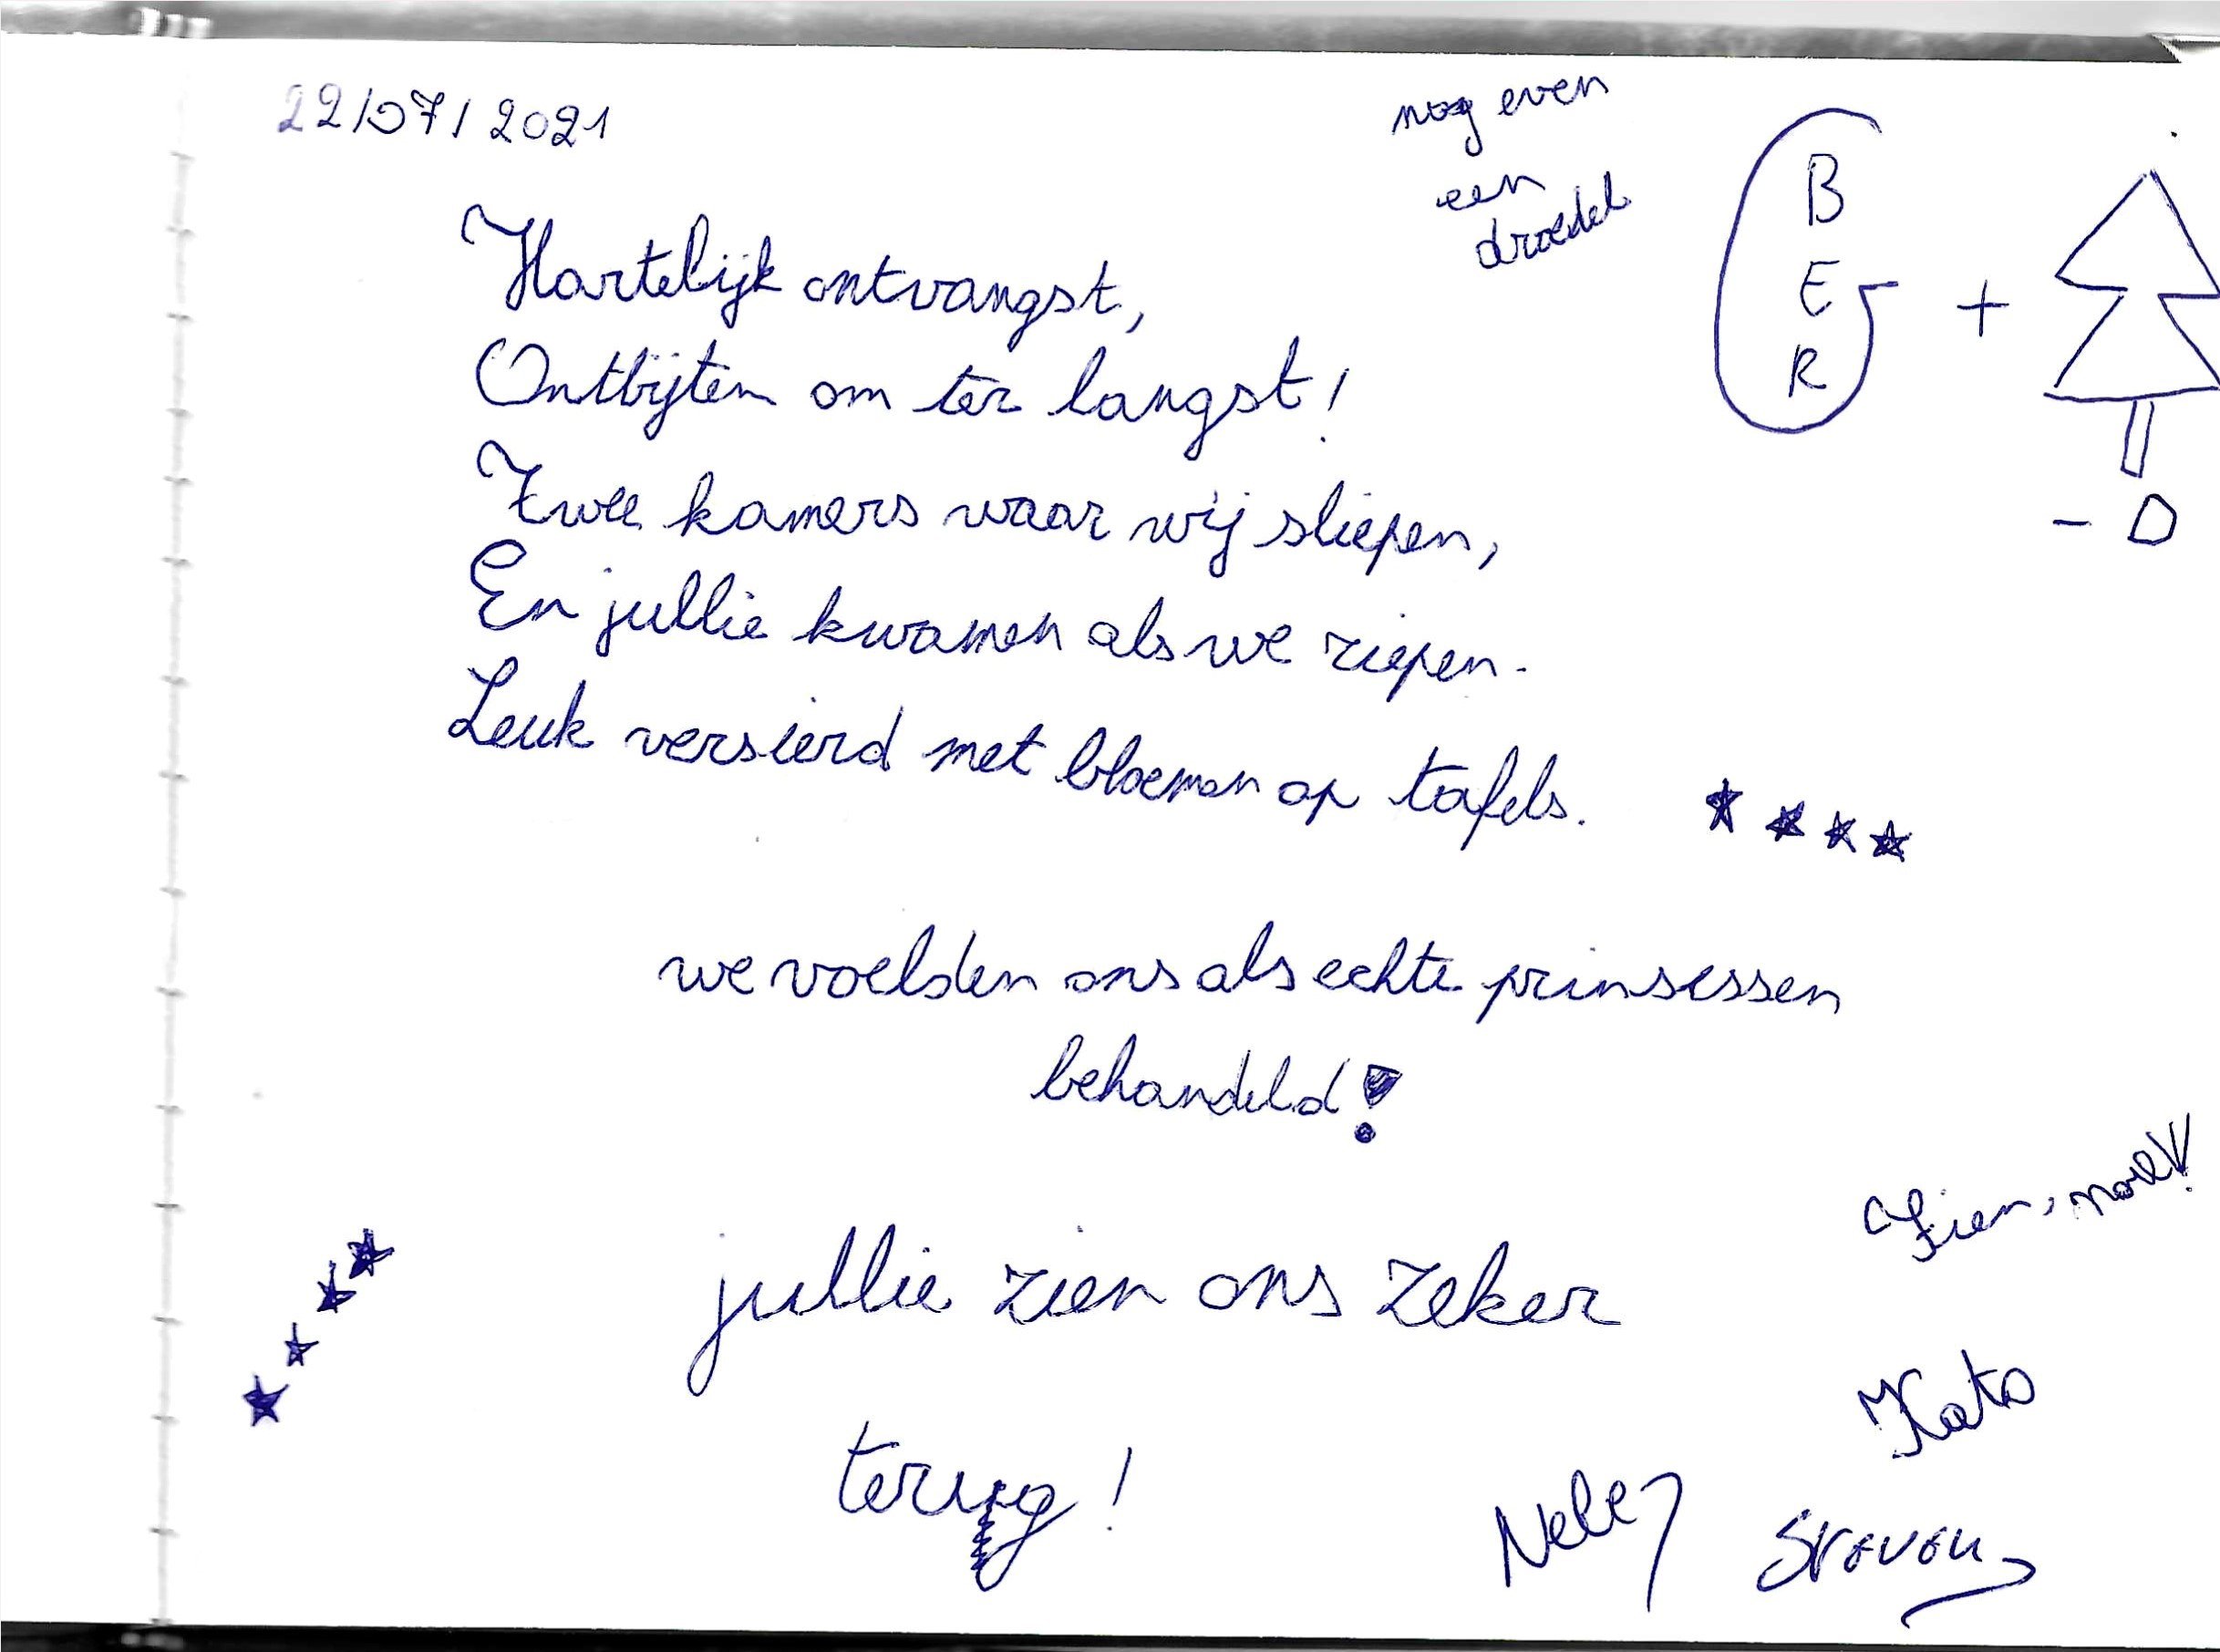 22/07/2021
nog even
een
droedel
B
E
R
+
- D
Hartelijk ontvangst,
Ontbijten om ter langst!
Twee kamers waar wij sliepen,
En jullie kwamen als we riepen.
Leuk versierd met bloemen op tafels.
we voelden ons als echte prinsessen
behandeld!
jullie zien ons zeker
terug!
Fien,
Kato
Nele
Steven